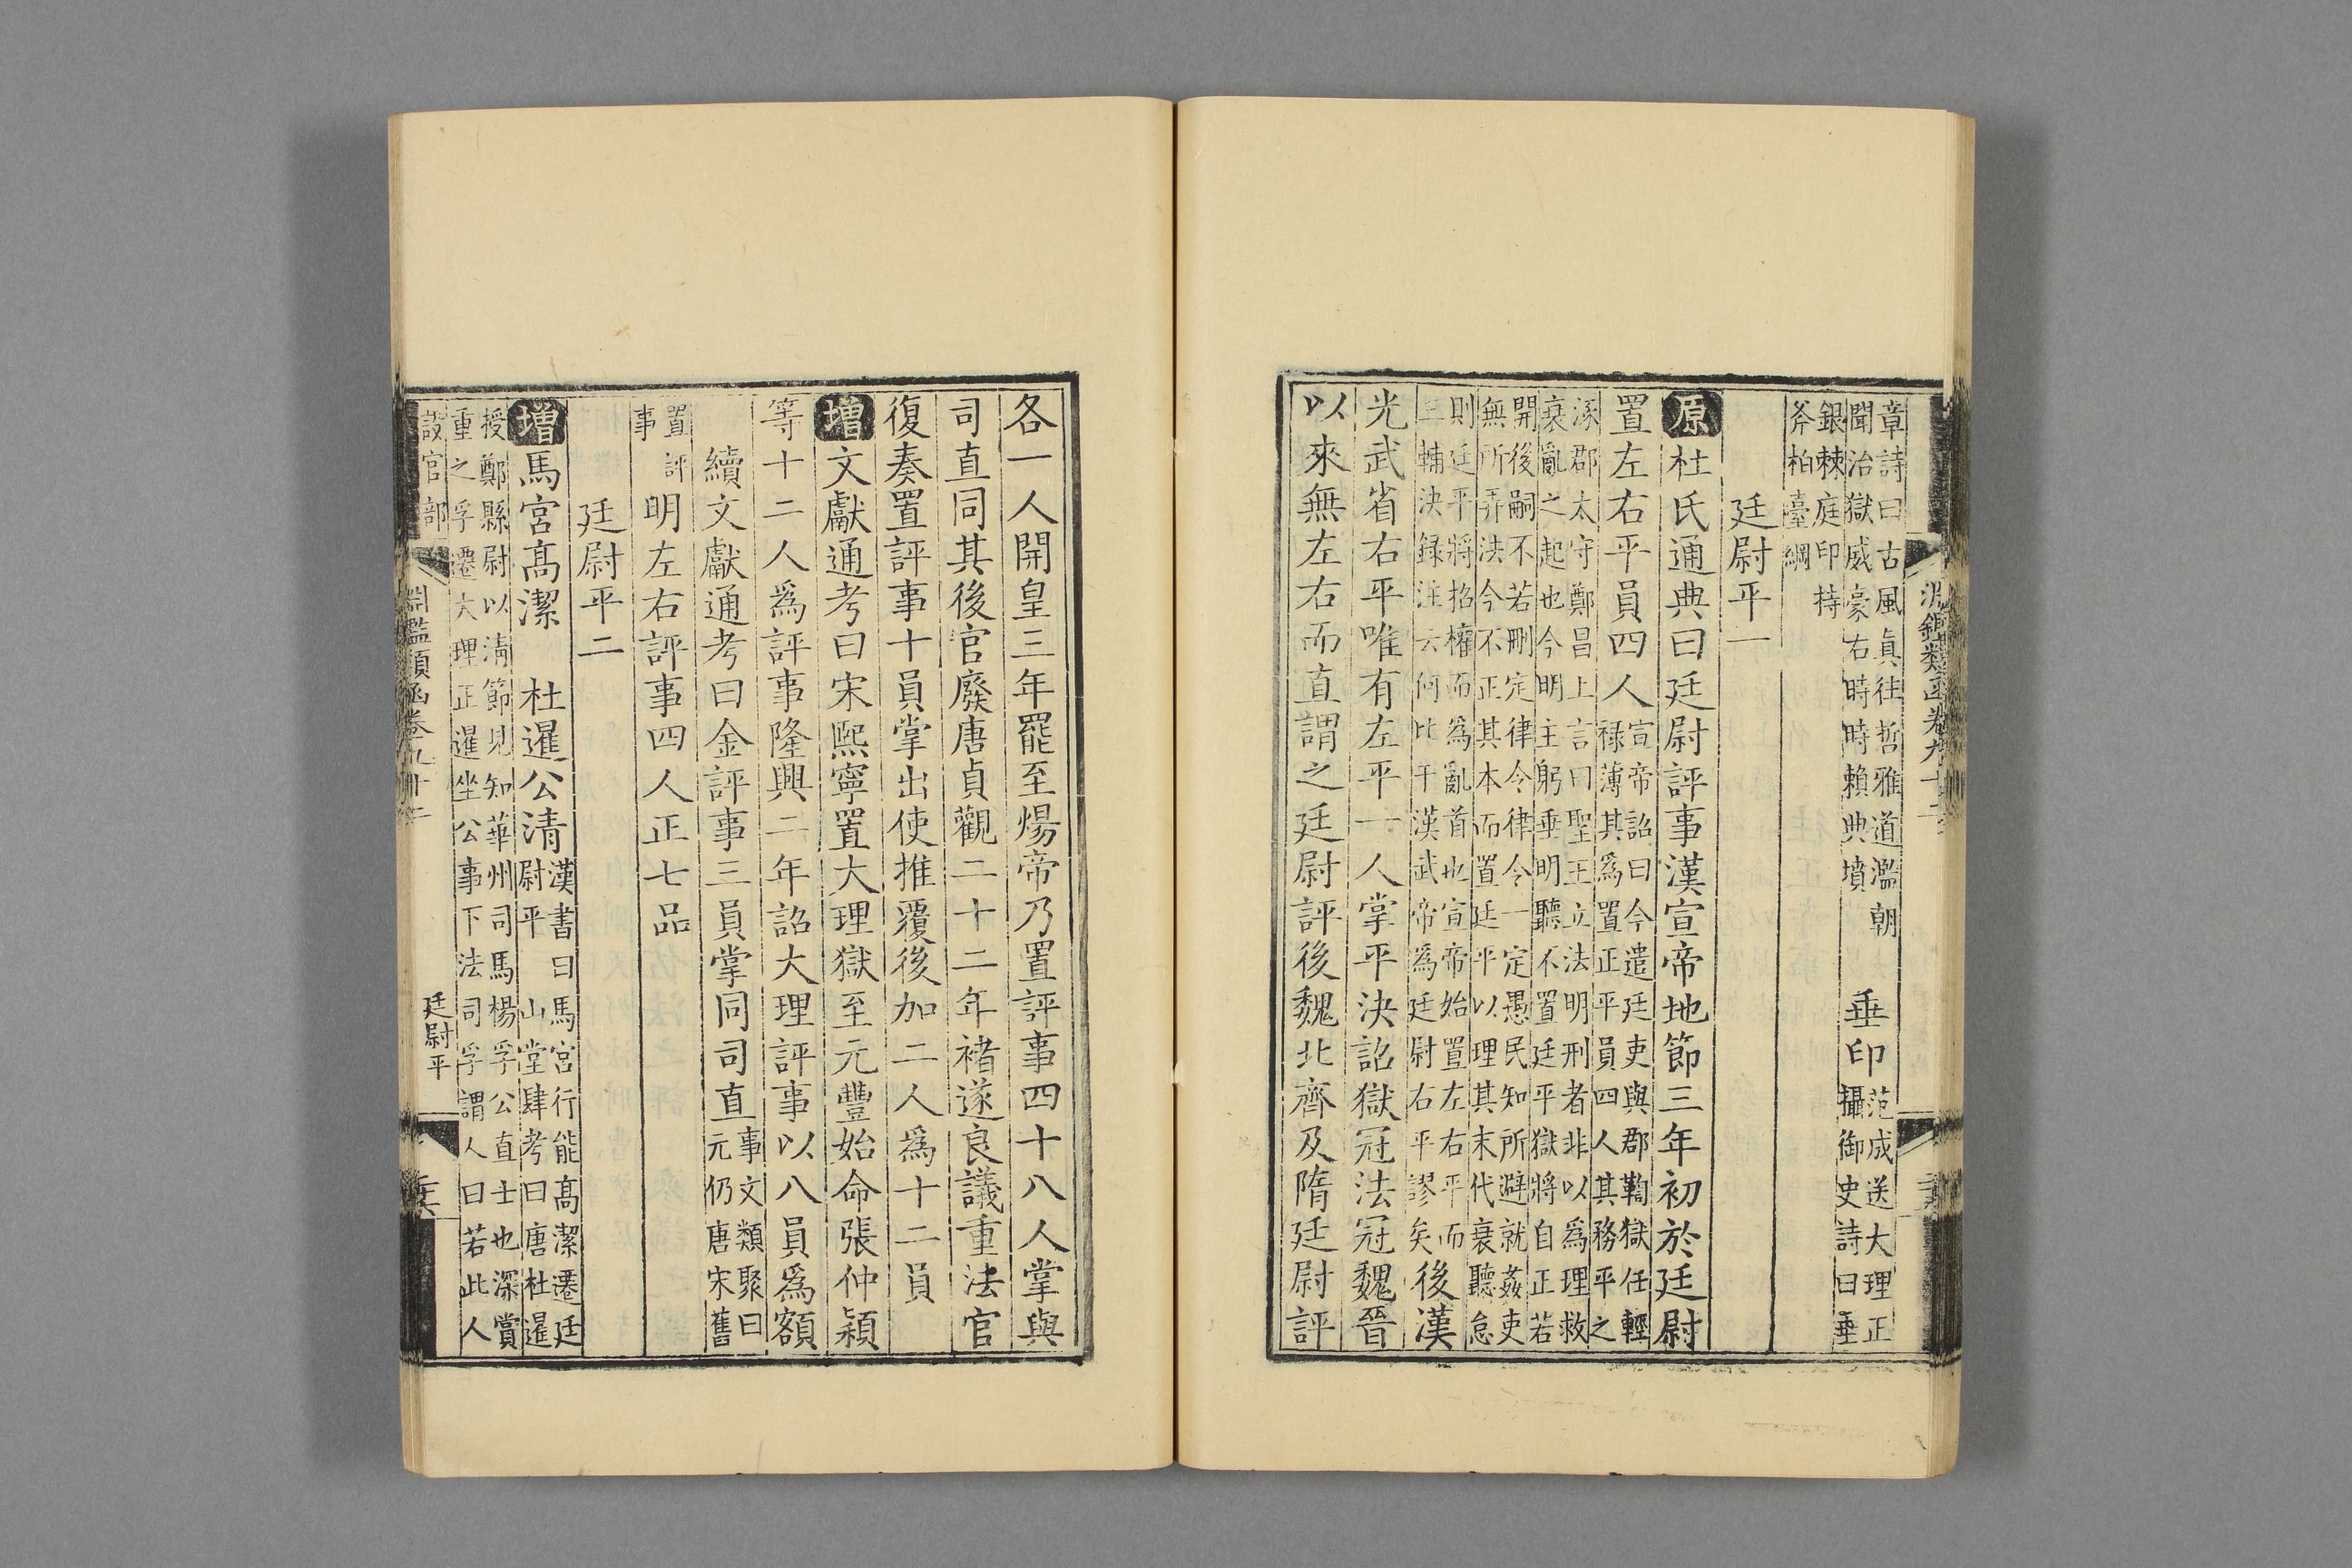 章詩曰古風眞往哲雅道濫朝
聞治獄威豪右時時賴典墳
垂印
范成送大理正
攝御史詩曰垂
銀棘庭印持
斧柏臺綱
廷尉平一
原杜氏通典曰廷尉評事漢宣帝地節三年初於廷尉
置左右平員四人
宣帝詔曰今遣廷吏與郡鞫獄任輕
祿薄其爲置正平員四人其務平之
涿郡太守鄭昌上言曰聖王立法明刑者非以爲理救
衰亂之起也今明主躬垂明聽不置廷平獄將自正若
開後嗣不若刪定律令律令一定愚民知所避就姦吏
無所弄法今不正其本而置廷平以理其末代衰聽怠
則廷平將招權而爲亂首也宣帝始置左右平而
三輔決録注云何比干漢武帝爲廷尉右平謬矣
後漢
光武省右平唯有左平一人掌平決詔獄冠法冠魏晉
以來無左右而直謂之廷尉評後魏北齊及隋廷尉評
各一人開皇三年罷至煬帝乃置評事四十八人掌與
司直同其後官廢唐貞觀二十二年褚遂良議重法官
復奏置評事十員掌出使推覆後加二人爲十二員
增文獻通考曰宋熙寧置大理獄至元豐始命張仲潁
等十二人爲評事隆興二年詔大理評事以八員爲額
續文獻通考曰金評事三員掌同司直
事文類聚曰
元仍唐宋舊
置評
事
明左右評事四人正七品
廷尉平二
增馬宮高潔 杜暹公清
漢書曰馬宮行能高潔遷廷
尉平 山堂肆考曰唐杜暹
授鄭縣尉以清節見知華州司馬楊孚公直士也深賞
重之孚遷大理正暹坐公事下法司孚謂人曰若此人
設官部
淵鑑類函卷九十二
廷尉平